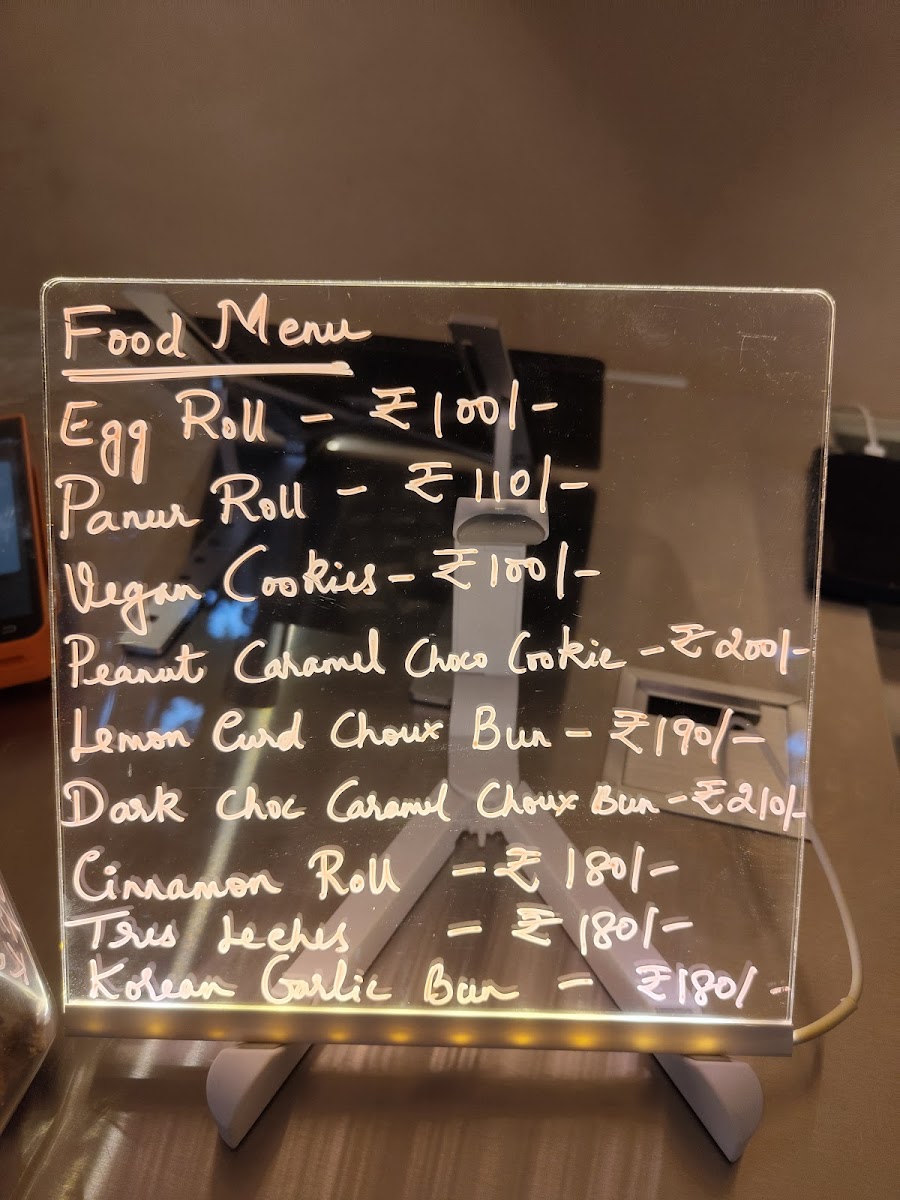 Food Menu
Egg Roll - ₹100/-
Paneer Roll - ₹110/-
Vegan Cookies - ₹100/-
Peanut Caramel Choco Cookie - ₹200/-
Lemon Curd Choux Bun - ₹190/-
Dark Choc Caramel Choux Bun - ₹210/-
Cinnamon Roll - ₹180/-
Tres Leches - ₹180/-
Korean Garlic Bun - ₹180/-